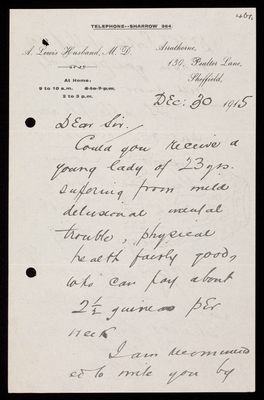 TELEPHONE--SHARROW 364.
A. Lewis Husband, M.D.
Arrathorne,
139, Psalter Lane,
Sheffield,
At Home:
9 to 10 a.m. 6 to 7 p.m.
2 to 3 p.m.
Dec: 30 1915
Dear Sir,
Could you receive a
young lady of 23 yrs.
suffering from mild
delusional mental
trouble, physical
health fairly good,
who can pay about
2½ guineas per
week
I am recommend
ed to write you by